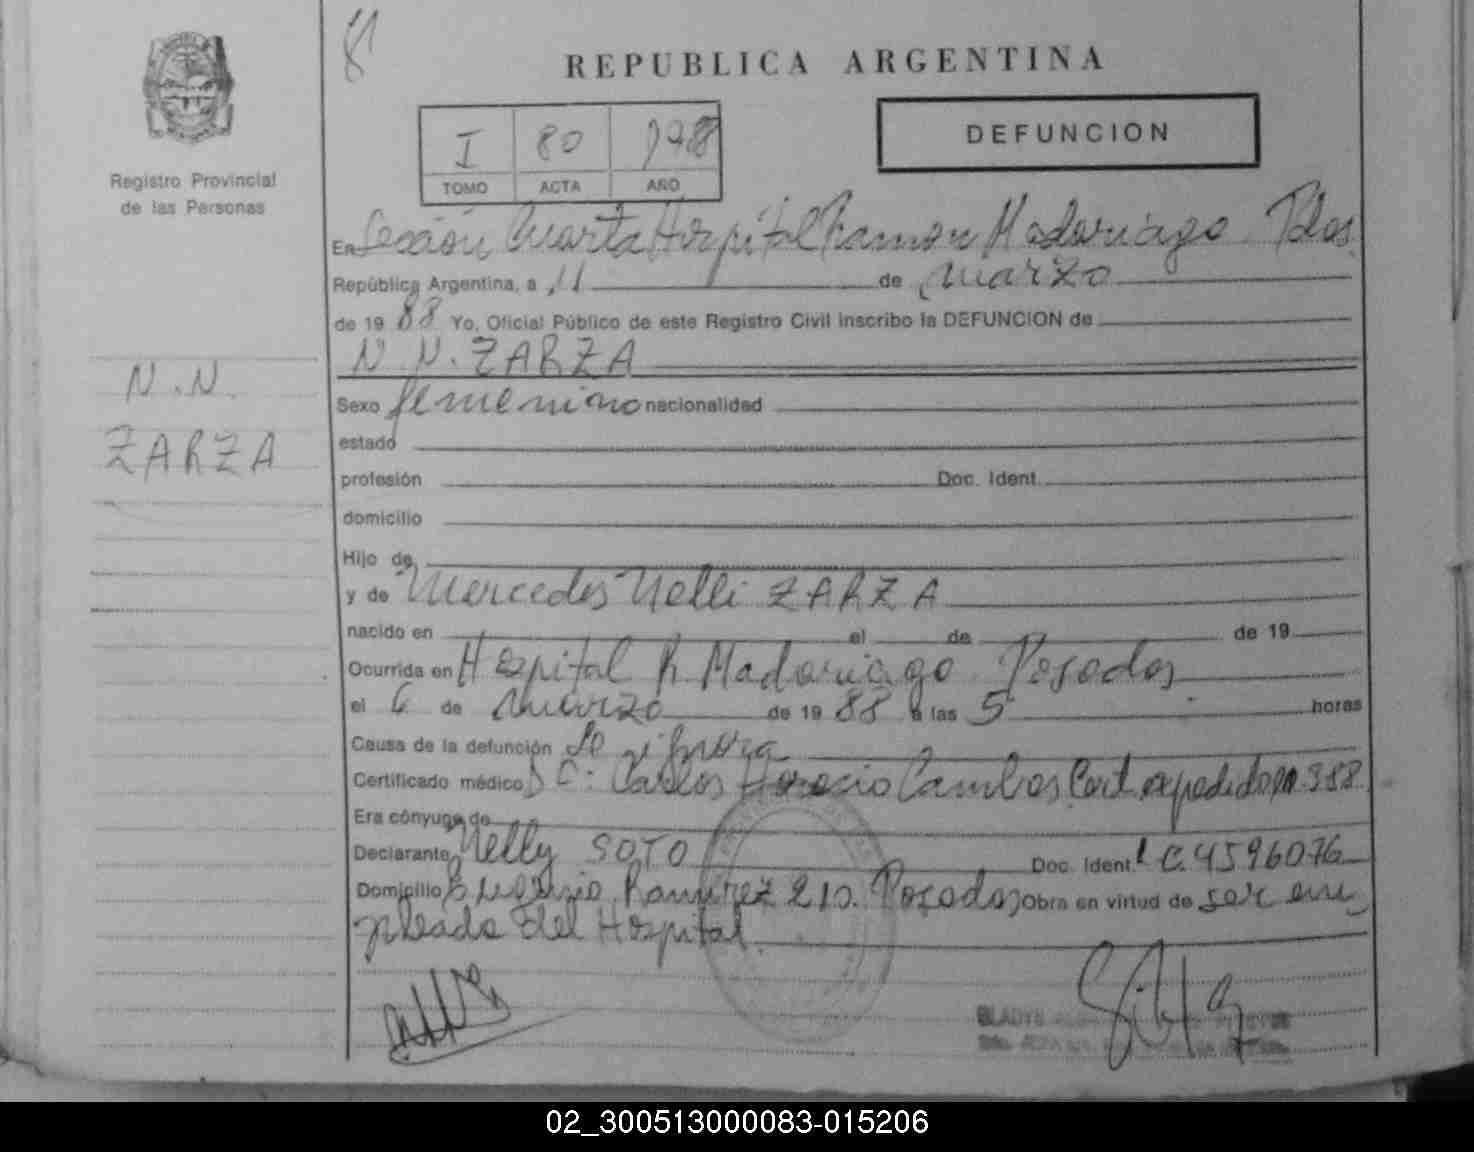 81
REPUBLICA ARGENTINA
I 80 1988
TOMO ACTA AÑO
DEFUNCION
Registro Provincial
de las Personas
En Sección Cuarta Hospital Ramon Madariaga. Pdas.
República Argentina, a 11 de marzo
de 1988 Yo, Oficial Público de este Registro Civil inscribo la DEFUNCION de
N.N. ZARZA
N.N.
ZARZA
Sexo femenino nacionalidad
estado
profesión Doc. Ident.
domicilio
Hijo de
y de Mercedes Nelli ZARZA
nacido en el de de 19
Ocurrida en Hospital R. Madariaga Posadas
el 6 de marzo de 1988 a las 5 horas
Causa de la defunción
Certificado médico Carlos Horacio Cert. expedido
Era cónyuge de
Declarante Nelly SOTO Doc. Ident. L.C. 4596076
Domicilio Ramirez 210. Posadas Obra en virtud de ser em
pleada del Hospital
GLADYS
02_300513000083-015206